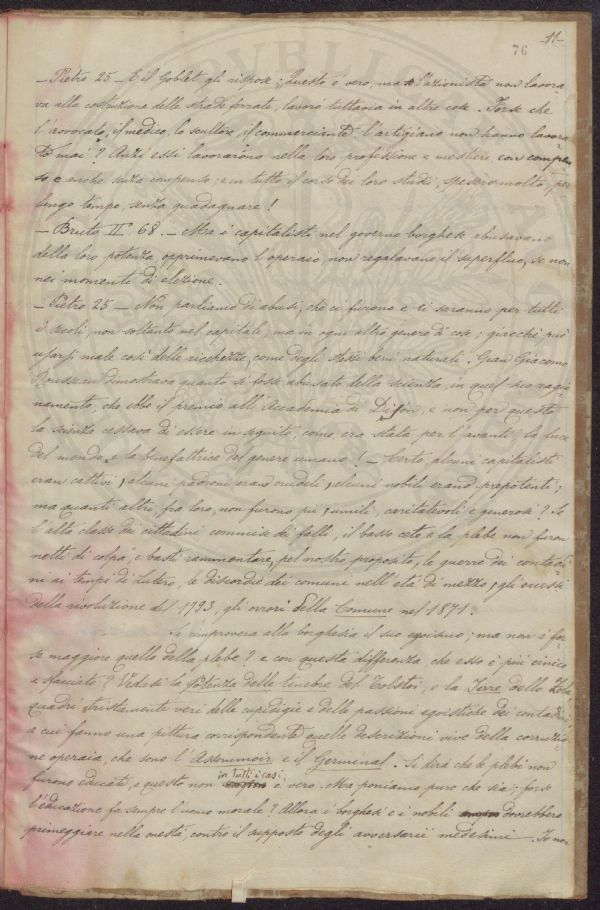 76 -11-
– Pietro 25 – E il Goblet gli rispose: "Questo è vero, ma se l'azionista non lavora
va alla costruzione delle strade ferrate, lavorò tuttavia in altre cose. Forse che
l'avvocato, il medico, lo scultore, il commerciante, l'artigiano non hanno lavora-
to mai? Anzi essi lavorarono nella loro professione e mestiere, con compen
so e anche senza compenso; e in tutto il corso dei loro studii, spesero molto, per
lungo tempo, senza guadagnare!
– Bruto II° 68. – Ma i capitalisti nel governo borghese abusavano
della loro potenza, opprimevano l'operaio non regalavano il superfluo, se non
nei momenti di elezione.
– Pietro 25 – Non parliamo di abusi, che ci furono e ci saranno per tutti
i secoli, non soltanto nel capitale, ma in ogni altro genere di cose; giacchè può
usarsi male così delle ricchezze, come degli stessi beni naturali. Gian Giacomo
Rousseau dimostrava quanto si fosse abusato della scienza, in quel suo ragio
namento, che ebbe il premio all'Accademia di Difon, e non per questo
la scienza cessava di essere in seguito, come era stata per l'avanti, la luce
del mondo, e la benefattrice del genere umano! – Certo, alcuni capitalisti
eran cattivi, alcuni padroni erano crudeli, alcuni nobili erano prepotenti;
ma quanti altri, fra loro, non furono pii, umili, caritatevoli e generosi? Se
l'alta classe dei cittadini commise dei falli, il basso ceto e la plebe non furon
netti di colpa, e basti rammentare, pel nostro proposito, le guerre dei contadi
ni ai tempi di Lutero, le discordie dei comuni nell'età di mezzo, gli eccessi
della rivoluzione del 1793, gli orrori della Comune nel 1871.
Si rimprovera alla borghesia il suo egoismo; ma non è for
se maggiore quello della plebe? e con questa differenza che esso è più cinico
e sfacciato? Vedesi la Potenza delle tenebre del Tolstoi, e la Terre dello Zola
quadri tristamente veri delle cupidigie e delle passioni egoistiche dei contadini,
a cui fanno una pittura corrispondente quelle descrizioni vive della corruzio
ne operaia, che sono l'Assommoir e il Germinal. Si dirà che le plebi non
furono educate, e questo non in tutti i casi, è vero. Ma poniamo pure che sia; forse
l'educazione fa sempre l'uomo morale? Allora i borghesi e i nobili dovrebbero
primeggiare nella onestà, contro il supposto degli avversarii medesimi. Io non